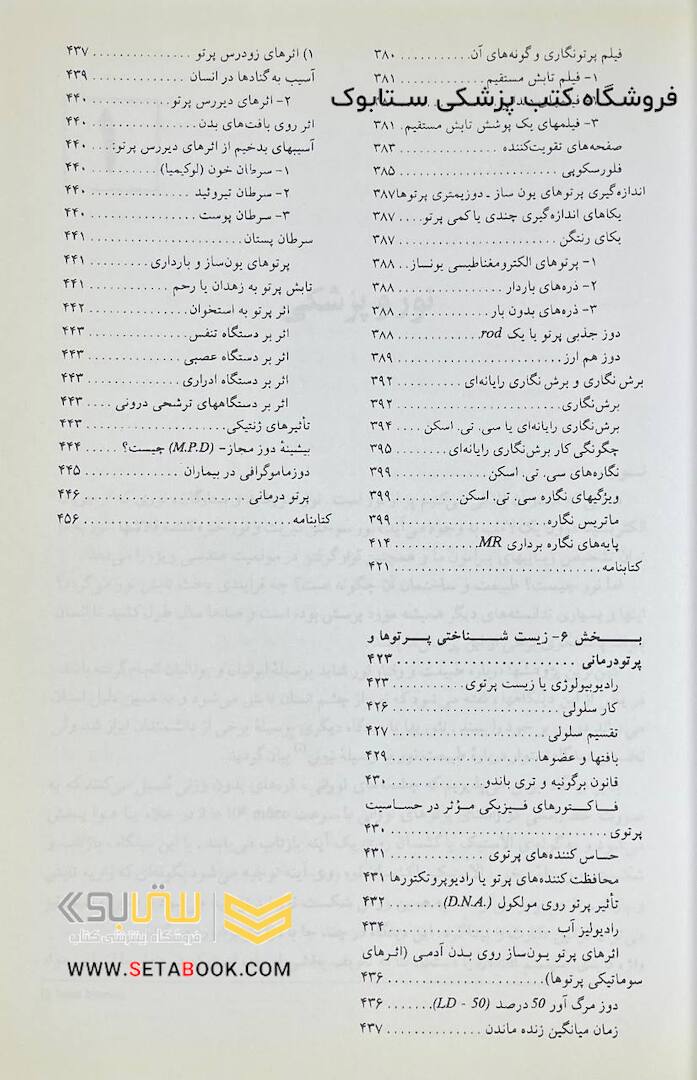 فیلم پرتونگاری و گونه‌های آن ........... ۳۸۰
۱- فیلم تابش مستقیم ........... ۳۸۱
فروشگاه کتب پزشکی ستابوک
۳- فیلمهای یک پوشش تابش مستقیم. ۳۸۱
صفحه‌های تقویت‌کننده ........... ۳۸۳
فلورسکوپی ........... ۳۸۵
اندازه‌گیری پرتوهای یون ساز ـ دوزیمتری پرتوها ۳۸۷
یکاهای اندازه‌گیری چندی یا کمی پرتو .... ۳۸۷
یکای رنتگن ........... ۳۸۷
۱- پرتوهای الکترومغناطیسی یونساز .. ۳۸۸
۲- ذره‌های باردار ........... ۳۸۸
۳- ذره‌های بدون بار ........... ۳۸۸
دوز جذبی پرتو یا یک rod ........... ۳۸۸
دوز هم ارز ........... ۳۸۹
برش نگاری و برش نگاری رایانه‌ای ........... ۳۹۲
برش‌نگاری ........... ۳۹۲
برش‌نگاری رایانه‌ای یا سی. تی. اسکن .... ۳۹۴
چگونگی کار برش‌نگاری رایانه‌ای ........ ۳۹۵
نگاره‌های سی. تی. اسکن ........... ۳۹۹
ویژگیهای نگاره سی. تی. اسکن ........... ۳۹۹
ماتریس نگاره ........... ۳۹۹
پایه‌های نگاره برداری MR ........... ۴۱۴
کتابنامه ........... ۴۲۱
بخش ۶- زیست شناختی پرتوها و
پرتودرمانی ........... ۴۲۳
رادیوبیولوژی یا زیست پرتوی ........... ۴۲۳
کار سلولی ........... ۴۲۶
تقسیم سلولی ........... ۴۲۷
بافتها و عضوها ........... ۴۲۹
قانون برگونیه و تری باندو ........... ۴۳۰
فاکتورهای فیزیکی مؤثر در حساسیت
پرتوی ........... ۴۳۰
حساس کننده‌های پرتوی ........... ۴۳۱
محافظت کننده‌های پرتو یا رادیوپروتکتورها ۴۳۱
تأثیر پرتو روی مولکول (D.N.A.) ........ ۴۳۲
رادیولیز آب ........... ۴۳۴
اثرهای پرتو یون‌ساز روی بدن آدمی (اثرهای
سوماتیکی پرتوها) ........... ۴۳۶
دوز مرگ آور 50 درصد (LD - 50) ........ ۴۳۶
زمان میانگین زنده ماندن ........... ۴۳۷
۱) اثرهای زودرس پرتو ........... ۴۳۷
آسیب به گنادها در انسان ........... ۴۳۹
۲- اثرهای دیررس پرتو ........... ۴۴۰
اثر روی بافت‌های بدن ........... ۴۴۰
آسیبهای بدخیم از اثرهای دیررس پرتو: ... ۴۴۰
۱- سرطان خون (لوکیمیا) ........... ۴۴۰
۲- سرطان تیروئید ........... ۴۴۰
۳- سرطان پوست ........... ۴۴۰
سرطان پستان ........... ۴۴۱
پرتوهای یون‌ساز و بارداری ........... ۴۴۱
تابش پرتو به زهدان یا رحم ........... ۴۴۱
اثر پرتو به استخوان ........... ۴۴۲
اثر بر دستگاه تنفس ........... ۴۴۳
اثر بر دستگاه عصبی ........... ۴۴۳
اثر بر دستگاه ادراری ........... ۴۴۳
اثر بر دستگاههای ترشحی درونی .... ۴۴۳
تأثیرهای ژنتیکی ........... ۴۴۳
بیشینهٔ دوز مجاز- (M.P.D) چیست؟ .... ۴۴۴
دوزماموگرافی در بیماران ........... ۴۴۵
پرتو درمانی ........... ۴۴۶
کتابنامه ........... ۴۵۶
ستابوک
فروشگاه اینترنتی کتاب
WWW.SETABOOK.COM